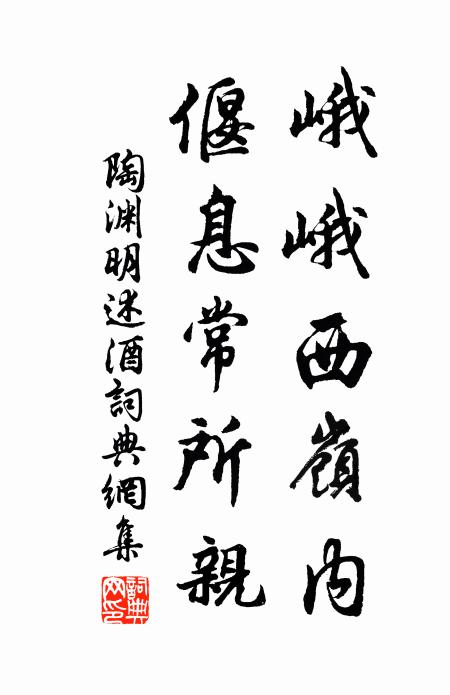 峨峨西嶺内
偃息常所親
陶渊明述酒詞典網集
詞典網印